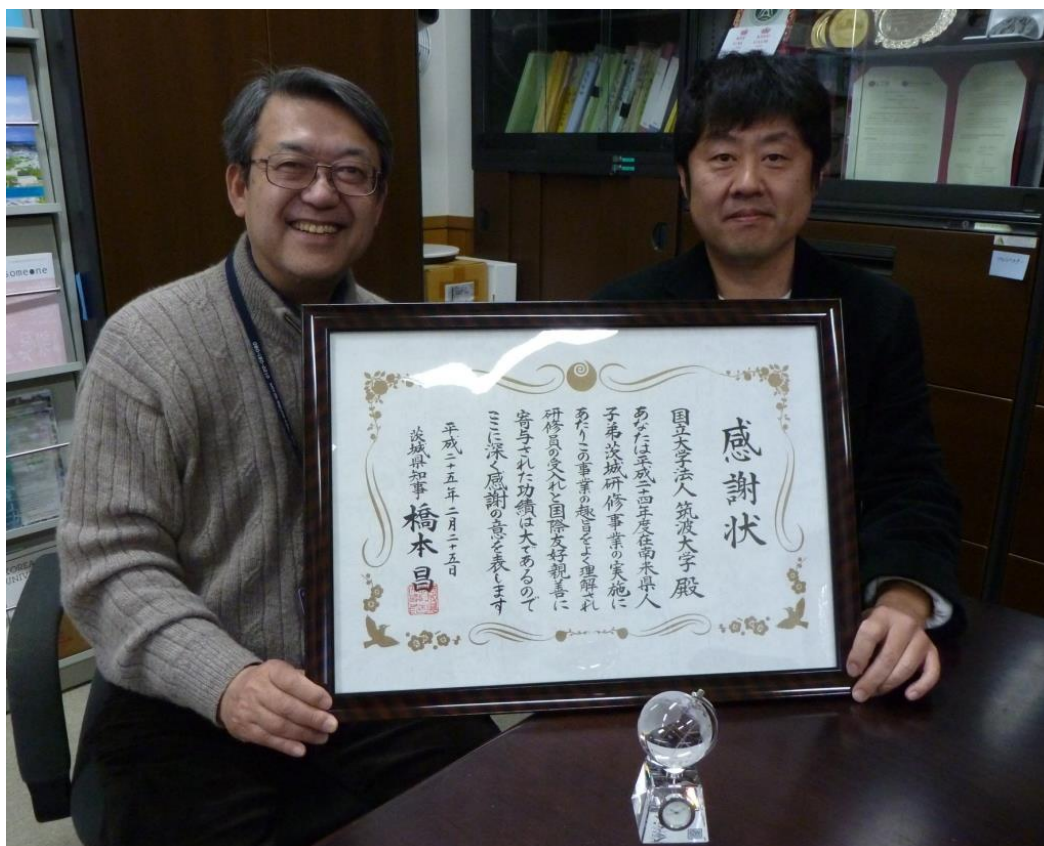 感謝状
国立大学法人 筑波大学 殿
あなたは平成二十四年度在南米県人
子弟茨城研修事業の実施に
あたりこの事業の趣旨をよく理解され
研修員の受入れと国際友好親善に
寄与された功績は大であるので
ここに深く感謝の意を表します
平成二十五年二月二十五日
茨城県知事 橋本昌
someone
KOREA
UNIV